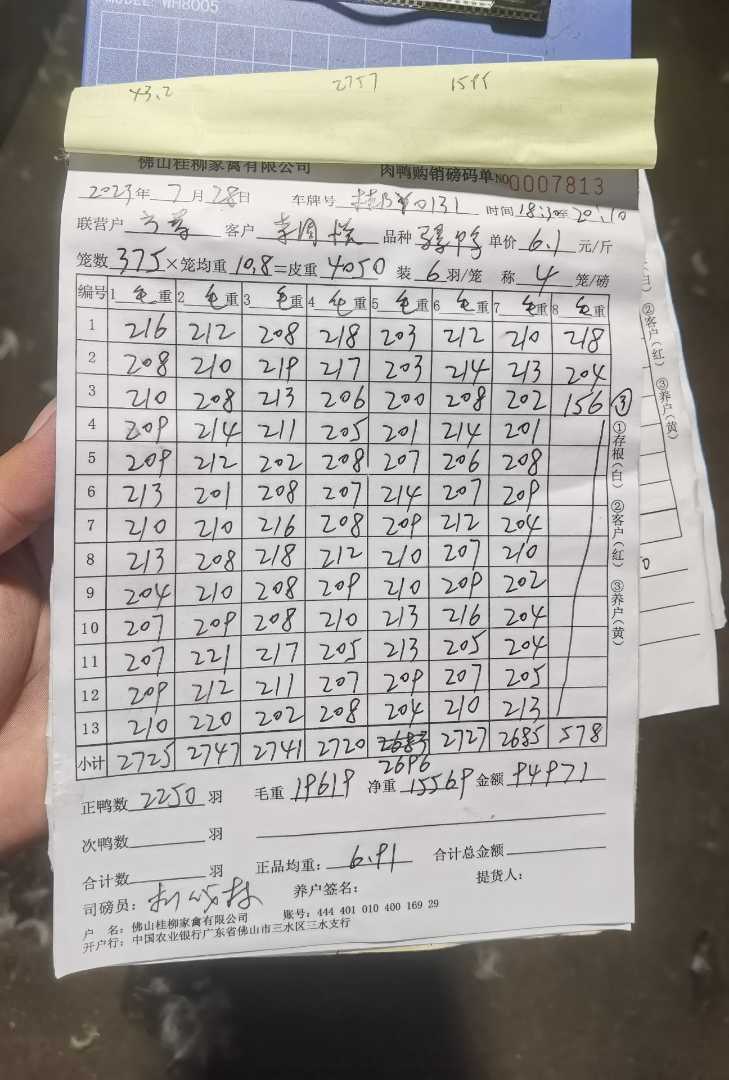 MODEL: WH8005
43.2 2757 1595
佛山桂柳家禽有限公司 肉鸭购销磅码单 NO 0007813
2023年 7月 28日 车牌号 0131 时间 18:30至20:10
联营户 客户 李周 品种 单价 6.1 元/斤
笼数 375 ×笼均重 10.8 =皮重 4050 装 6 羽/笼 称 4 笼/磅
编号 1 毛重 2 毛重 3 毛重 4 毛重 5 毛重 6 毛重 7 毛重 8 毛重
1 216 212 208 218 203 212 210 218
2 208 210 219 217 203 214 213 204
3 210 208 213 206 200 208 202 156 ③
4 209 214 211 205 201 214 201
5 209 212 202 208 207 206 208
6 213 201 208 207 214 207 209
7 210 210 216 208 209 212 204
8 213 208 218 212 210 207 210
9 204 210 208 209 210 209 202
10 207 209 208 210 213 216 204
11 207 221 217 205 213 205 204
12 209 212 211 207 209 207 205
13 210 220 202 208 204 210 213
小计 2725 2747 2741 2720 2683 2727 2685 578
2696
正鸭数 2250 羽 毛重 19619 净重 15569 金额 94971
次鸭数 羽
合计数 羽 正品均重: 6.91 合计总金额
司磅员: 养户签名: 提货人:
户 名: 佛山桂柳家禽有限公司 账号: 444 401 010 400 169 29
开户行: 中国农业银行广东省佛山市三水区三水支行
①存根(白) ②客户(红) ③养户(黄)
(白) ②客户(红) ③养户(黄)